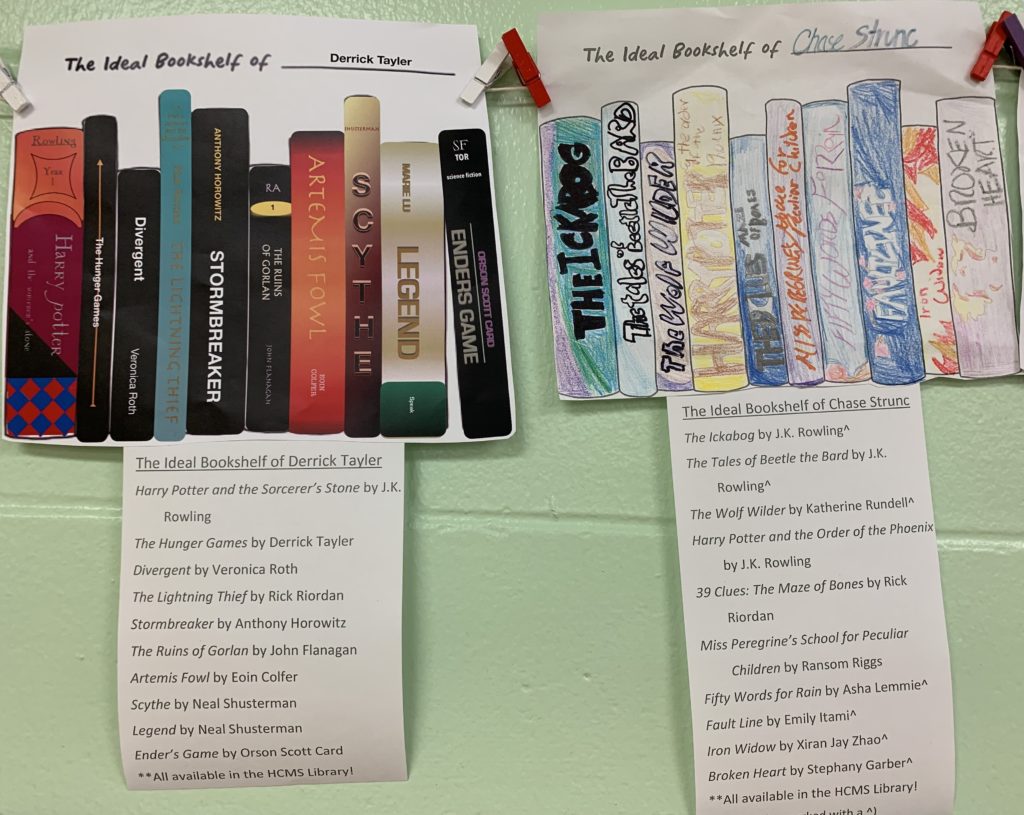 The Ideal Bookshelf of Derrick Tayler
Rowling
Year
1
Harry Potter
and the sorcerer's stone
The Hunger Games
Divergent
Veronica Roth
THE LIGHTNING THIEF
ANTHONY HOROWITZ
STORMBREAKER
RA
1
THE RUINS
OF GORLAN
JOHN FLANAGAN
ARTEMIS FOWL
EOIN
COLFER
SHUSTERMAN
SCYTHE
MARIE LU
LEGEND
Speak
SF
TOR
science fiction
ORSON SCOTT CARD
ENDERS GAME
The Ideal Bookshelf of Derrick Tayler
Harry Potter and the Sorcerer's Stone by J.K.
Rowling
The Hunger Games by Derrick Tayler
Divergent by Veronica Roth
The Lightning Thief by Rick Riordan
Stormbreaker by Anthony Horowitz
The Ruins of Gorlan by John Flanagan
Artemis Fowl by Eoin Colfer
Scythe by Neal Shusterman
Legend by Neal Shusterman
Ender's Game by Orson Scott Card
**All available in the HCMS Library!
The Ideal Bookshelf of Chase Strunc
THE ICKABOG
The tales of Beetle The BARD
The WOLF WILDER
HARRY POTTER
of the order
of the
Phenix
BONES
Iron Widow
BROKEN
HEART
The Ideal Bookshelf of Chase Strunc
The Ickabog by J.K. Rowling^
The Tales of Beetle the Bard by J.K.
Rowling^
The Wolf Wilder by Katherine Rundell^
Harry Potter and the Order of the Phoenix
by J.K. Rowling
39 Clues: The Maze of Bones by Rick
Riordan
Miss Peregrine's School for Peculiar
Children by Ransom Riggs
Fifty Words for Rain by Asha Lemmie^
Fault Line by Emily Itami^
Iron Widow by Xiran Jay Zhao^
Broken Heart by Stephany Garber^
**All available in the HCMS Library!
marked with a ^)